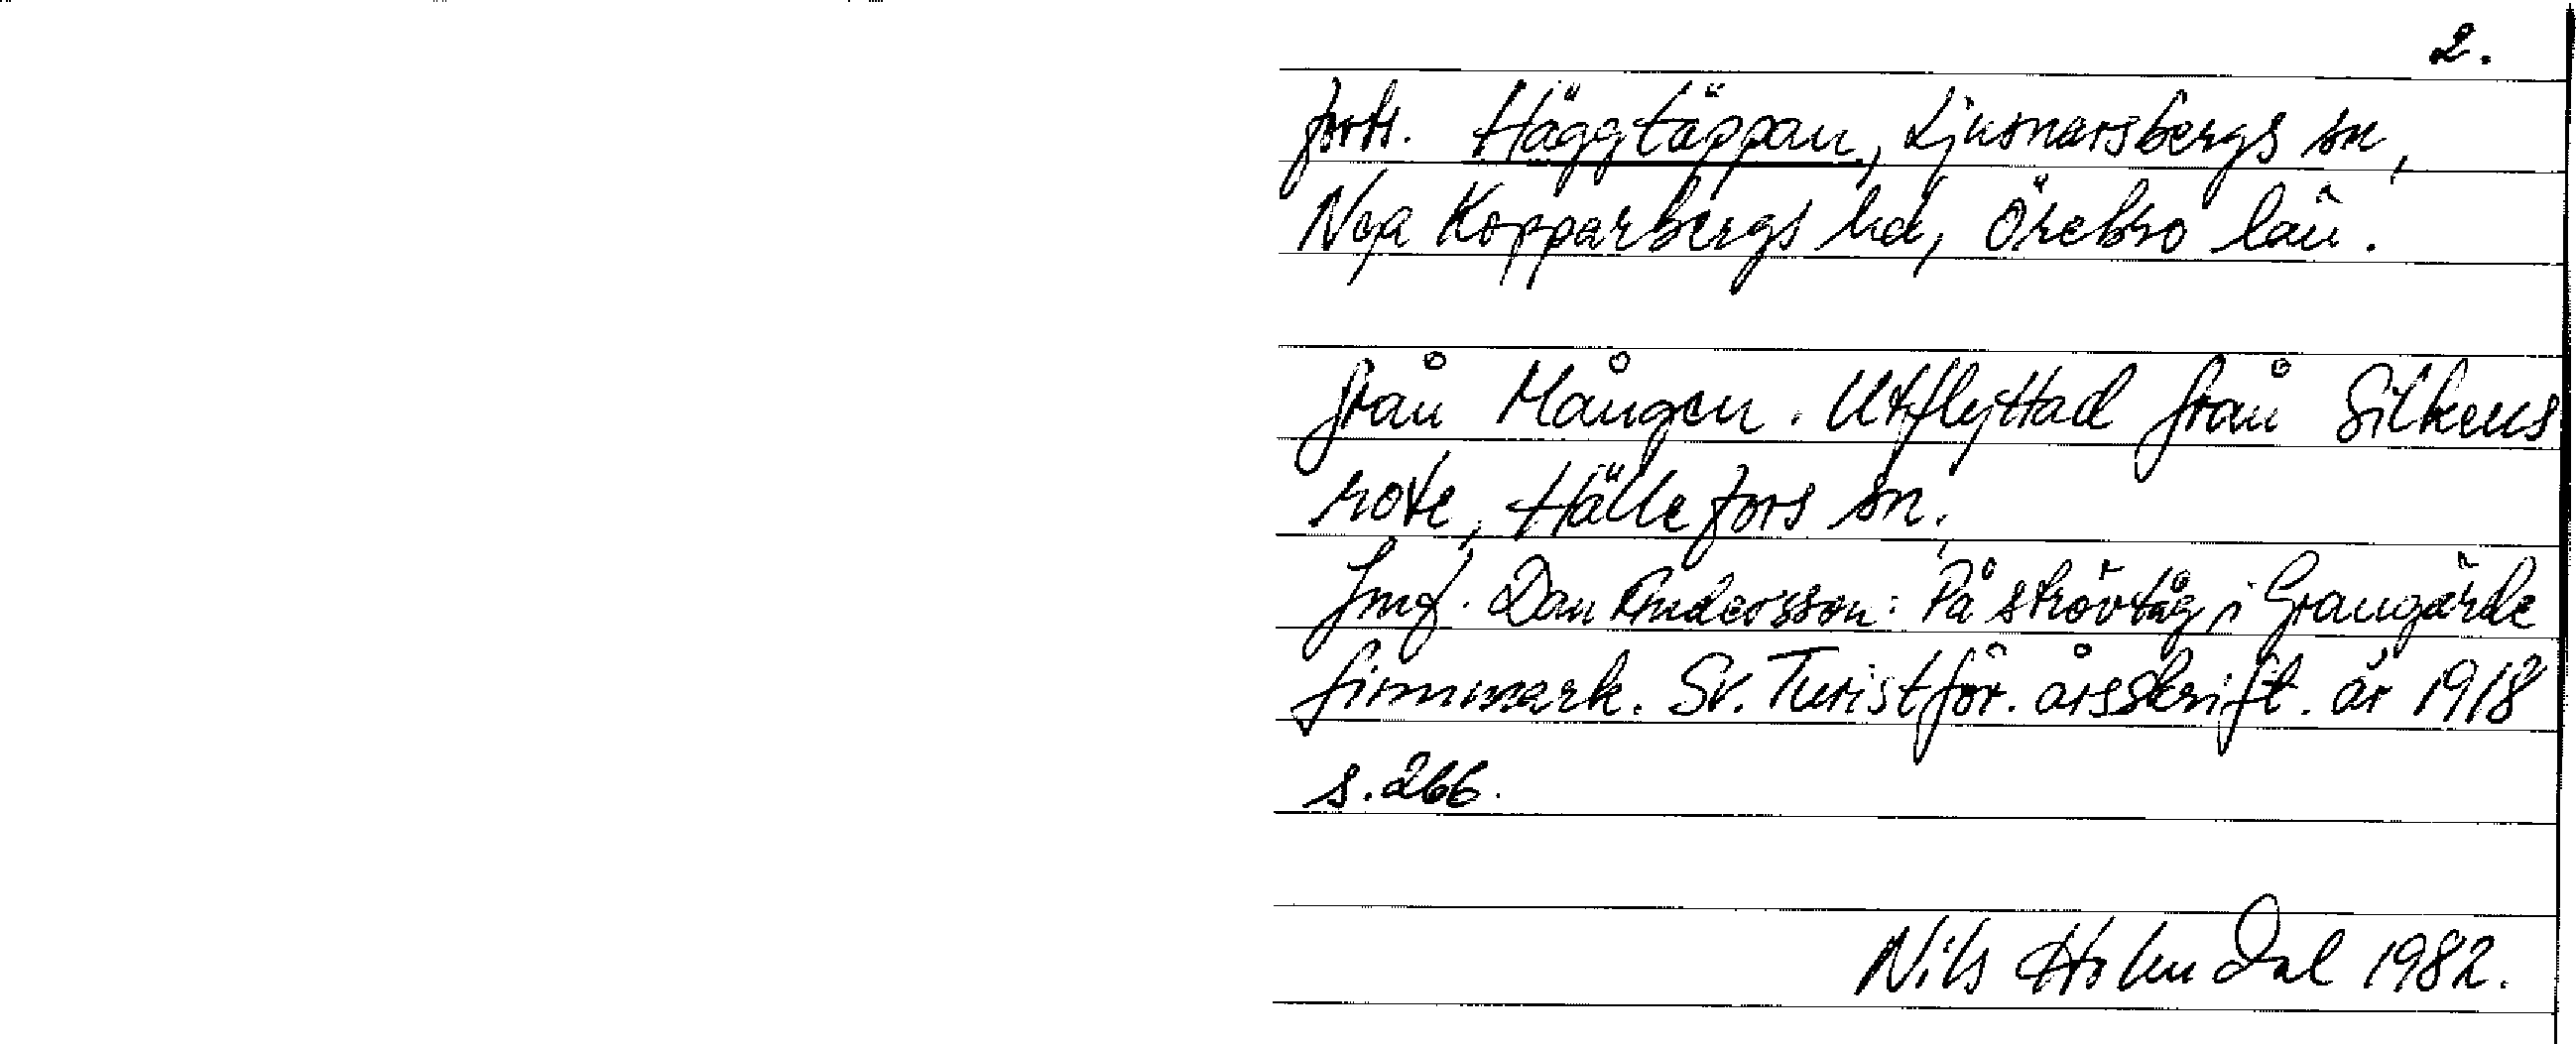 2.
forts. Häggtäppan, Ljusnarsbergs sn,
Nya Kopparbergs hd, Örebro län.
från Mången. Utflyttad från Silkens
rote, Hällefors sn.
Jmf. Dan Andersson: På strövtåg i Grangärde
finnmark. Sv. Turistför. årsskrift. år 1918
s. 266.
Nils Holmdal 1982.